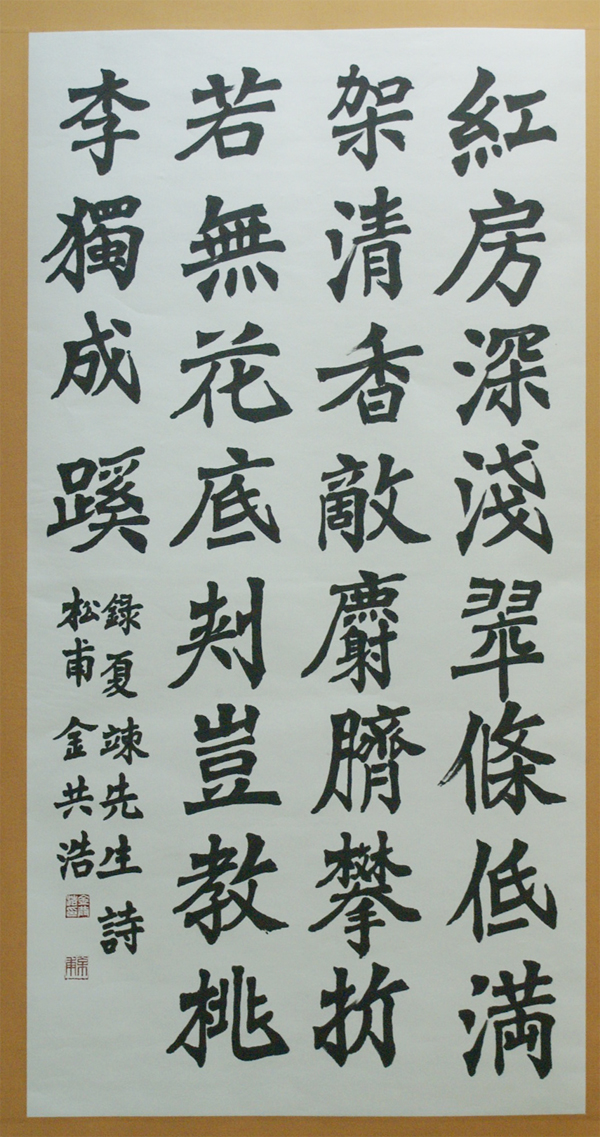 紅房深淺翠條低滿
架清香敵麝臍攀折
若無花底刺豈教桃
李獨成蹊
錄夏竦先生詩
松甫 金共浩